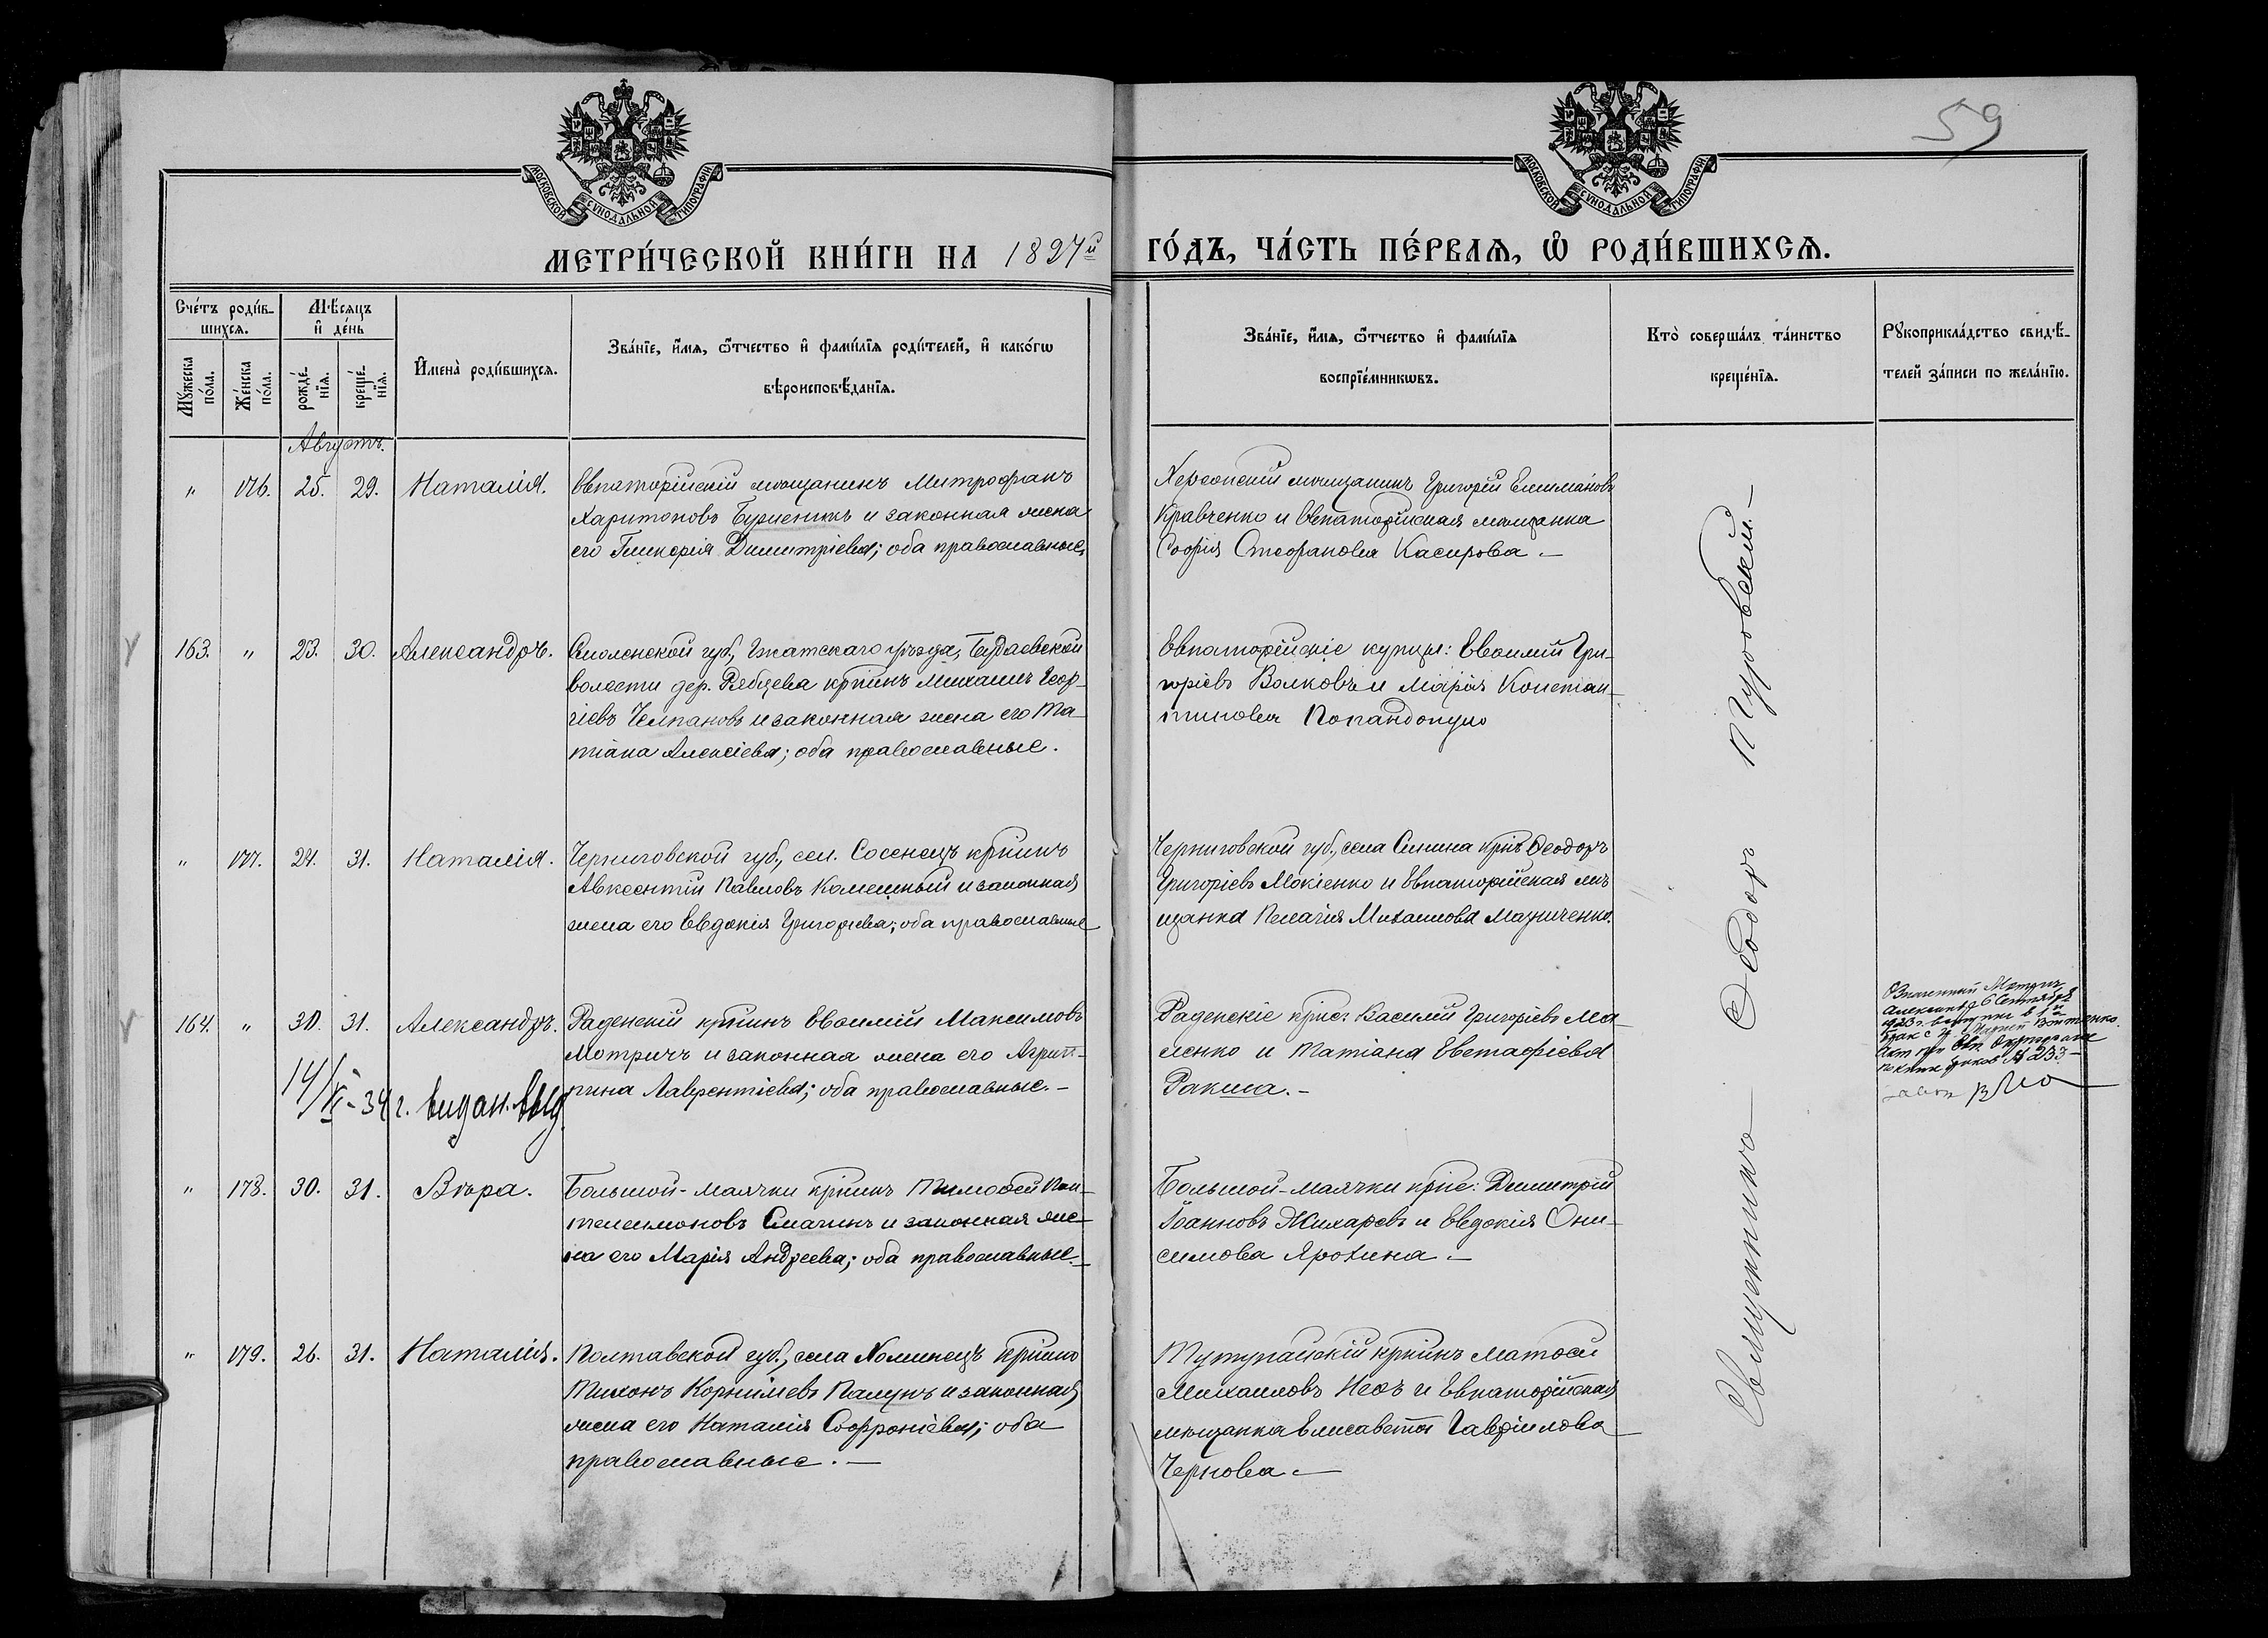 59
МОСКОВСКОЙ СѴНОДАЛЬНОЙ ТИПОГРАФІИ
МОСКОВСКОЙ СѴНОДАЛЬНОЙ ТИПОГРАФІИ
МЕТРИ́ЧЕСКОЙ КНИ́ГИ НА 1897й ГО́ДЪ, ЧА́СТЬ ПЕ́РВАѦ, Ѽ РОДИ́ВШИХСѦ.
Сче́тъ роди́в-
шихсѧ.
Мꙋжеска по́ла.
Же́нска по́ла.
Мѣ́сѧцъ
и҆ де́нь
рожде́-
нїѧ.
креще́-
нїѧ.
И҆мена̀ роди́вшихсѧ.
Зва́нїе, и҆́мѧ, ѻ҆́тчество и҆ фами́лїѧ роди́телей, и҆ како́гѡ
вѣроисповѣ́данїѧ.
Зва́нїе, и҆́мѧ, ѻ҆́тчество и҆ фами́лїѧ
воспрїе́мникѡвъ.
Кто̀ соверша́лъ та́инство
креще́нїѧ.
Рꙋкоприкла́дство свидѣ́-
телей за́писи по жела́нїю.
Августъ.
" 176. 25. 29. Наталія.
Евпаторійскій мѣщанинъ Митрофанъ
Харитоновъ и законная жена
его Гликерія Димитріева; оба православные,
Херсонскій мѣщанинъ Григорій
Кравченко и Евпаторійская мѣщанка
Софія Стефанова Касирова. —
163. " 23. 30. Александръ.
Смоленской губ., Гжатскаго уѣзда, Будаевской
волости дер. Рябцева кр҃тнинъ Михаилъ Геор-
гіевъ Челпановъ и законная жена его Та-
тіана Алексіева; оба православные.
Евпаторійскіе купцы: Евѳимій Гри-
горіевъ Волковъ и Марія Констан-
тинова Попандопуло
" 177. 24. 31. Наталія.
Черниговской губ., сел. Сосенецъ кр҃тнинъ
Авксентій Павловъ и законная
жена его Евдокія Григоріева; оба православные
Черниговской губ., села Синина Ѳеодоръ
Григоріевъ Мокіенко и Евпаторійская мѣ-
щанка Пелагія Михаилова Мазниченко.
164. " 30. 31. Александръ.
Раденскій кр҃тнинъ Евѳимій Максимовъ
Мотричъ и законная жена его Агрип-
пина Лаврентіева; оба православные. —
14/VI-34 г. видан. выд.
Раденскіе кр҃тне: Василій Григоріевъ Ма-
сенко и Татіана Евстафіева
Ракша. —
Означенный Мотрич
Александр 6 Сентября
1923 г. вступил в 1й
брак с гр. Марией Войтенко.
№ 233 —
" 178. 30. 31. Вѣра.
Большой-Маячки кр҃тнинъ Тимоѳей Пан-
телеимоновъ Смагинъ и законная же-
на его Марія Андреева; оба православные. —
Большой-Маячки кр҃тне: Димитрій
Іоанновъ Жихаревъ и Евдокія Они-
симова Ярохина —
" 179. 26. 31. Наталія.
Полтавской губ., села Хоминецъ кр҃тнинъ
Тихонъ Корниліевъ Палунъ и законная
жена его Наталія Софроніева; оба
православные. —
кр҃тнинъ Матѳей
Михаиловъ Нехъ и Евпаторійская
мѣщанка Елисавета Гавріилова
Чернова. —
Священникъ Ѳеодоръ Туровскій. —